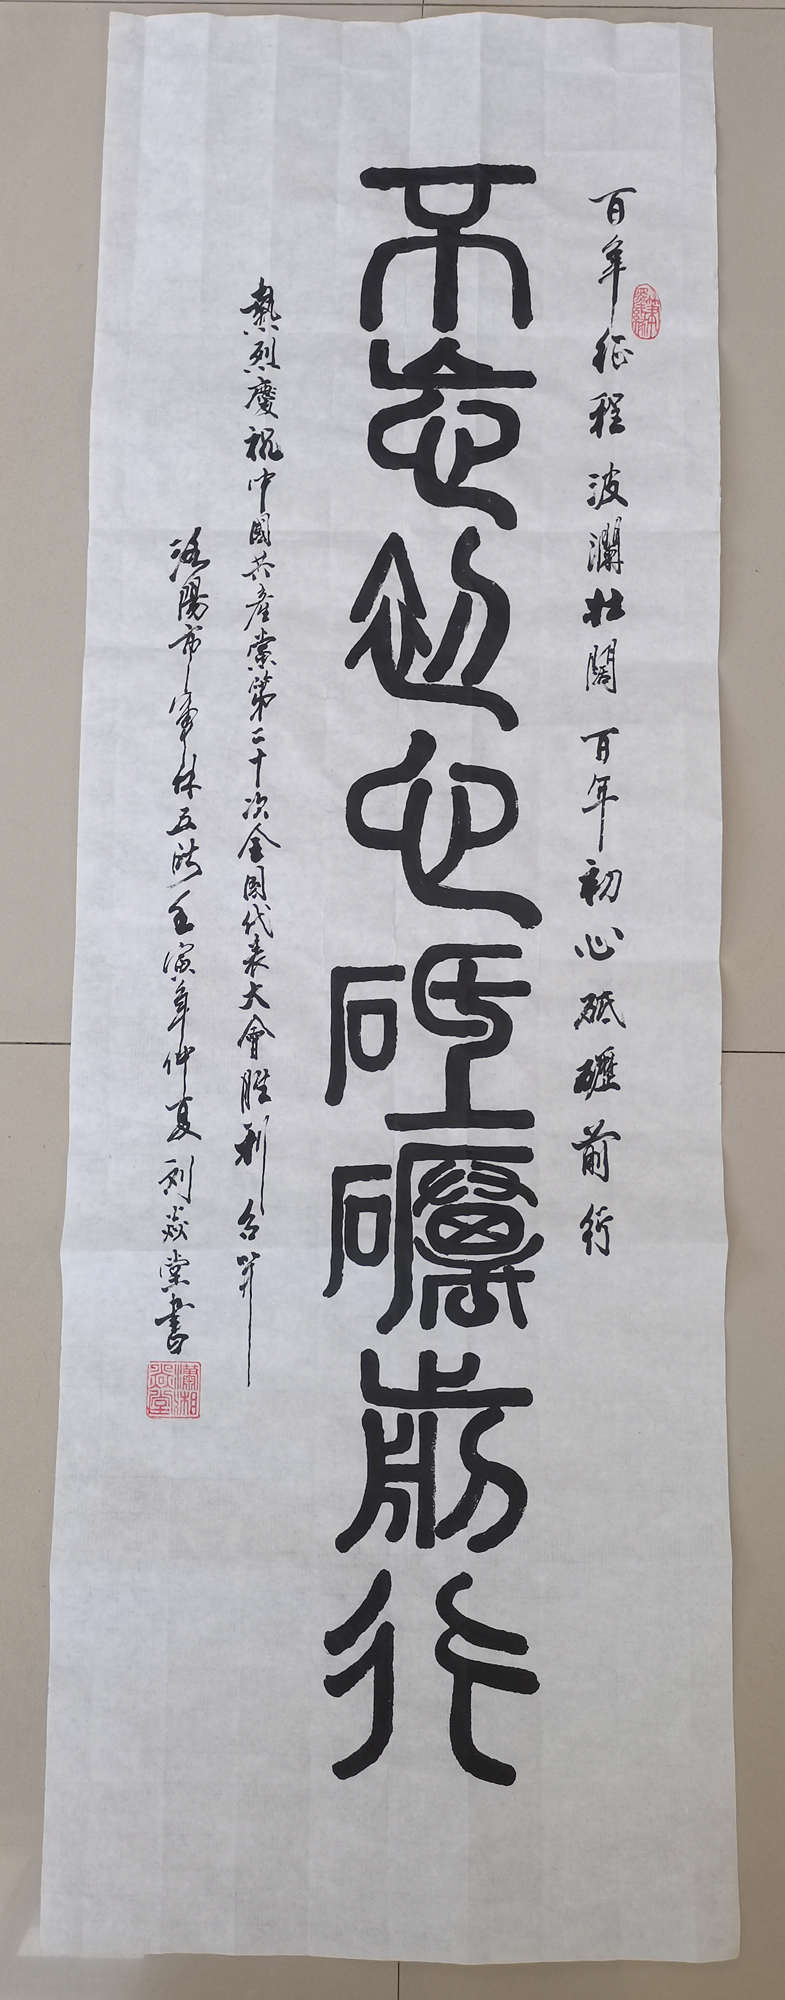 百年征程波澜壮阔 百年初心砥礪前行
不忘初心砥礪前行
熱烈慶祝中國共產黨第二十次全國代表大會勝利召開
洛陽市軍休五所壬寅年仲夏刘焱棠書
瀟湘
焱堂